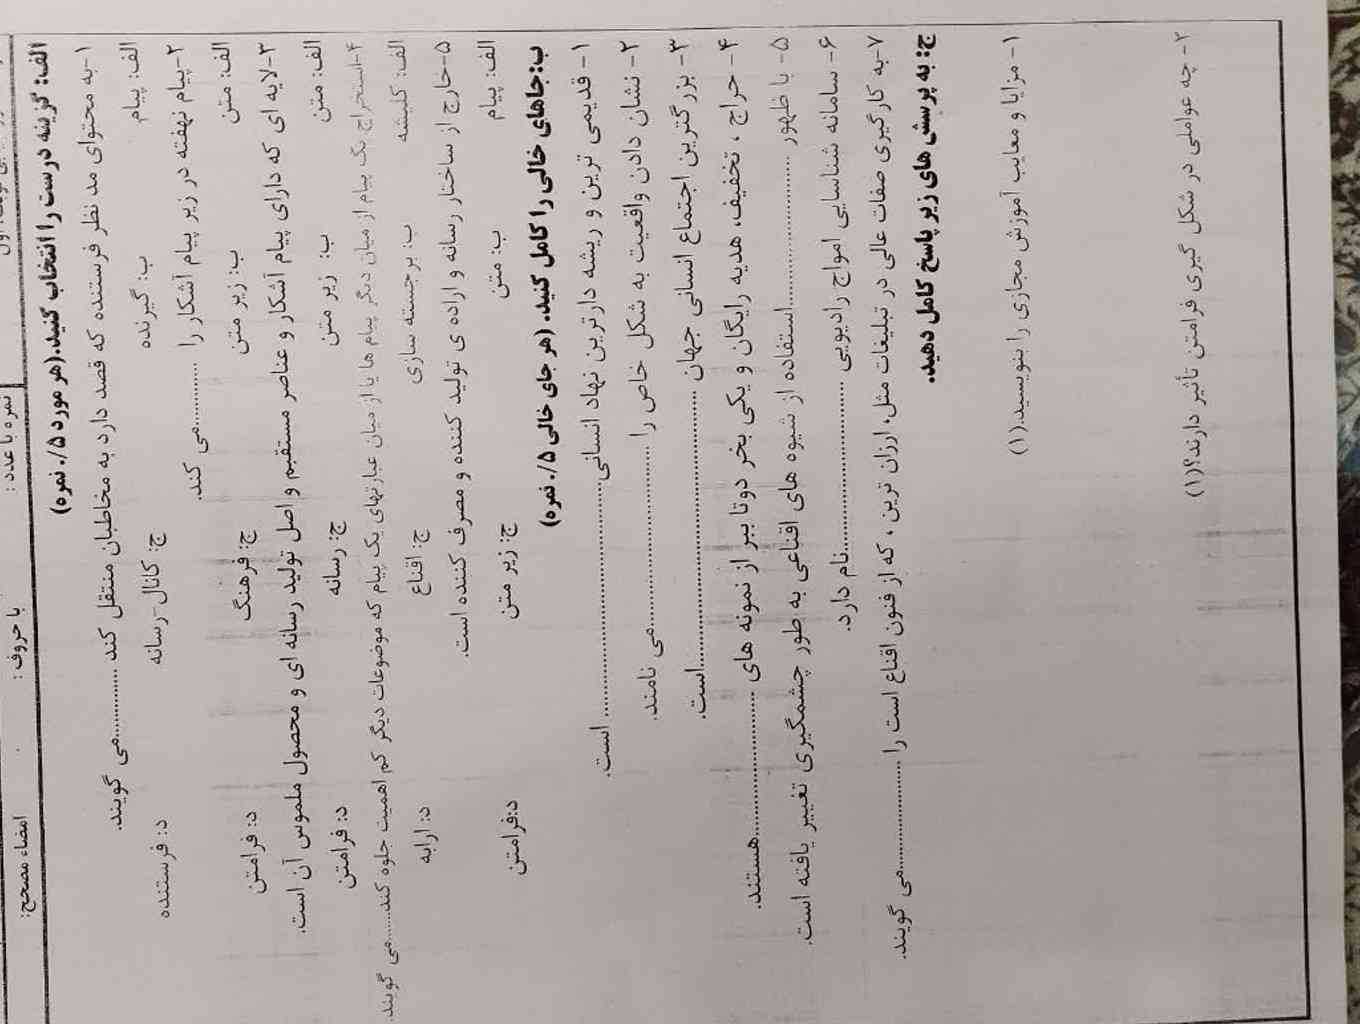 نمره با عدد : با حروف : امضاء مصحح:
الف: گزینه درست را انتخاب کنید.(هر مورد ۰/۵ نمره)
۱-به محتوای مد نظر فرستنده که قصد دارد به مخاطبان منتقل کند ............می گویند.
الف: پیام ب: گیرنده ج: کانال-رسانه د: فرستنده
۲-پیام نهفته در زیر پیام آشکار را ............می کند.
الف: متن ب: زیر متن ج: فرهنگ د: فرامتن
۳-لایه ای که دارای پیام آشکار و عناصر مستقیم و اصل تولید رسانه ای و محصول ملموس آن است.
الف: متن ب: زیر متن ج: رسانه د: فرامتن
۴-استخراج یک پیام از میان دیگر پیام ها یا از میان عبارتهای یک پیام که موضوعات دیگر کم اهمیت جلوه کند........می گویند.
الف: کلیشه ب: برجسته سازی ج: اقناع د: ارایه
۵-خارج از ساختار رسانه و اراده ی تولید کننده و مصرف کننده است.
الف: پیام ب: متن ج: زیر متن د:فرامتن
ب:جاهای خالی را کامل کنید. (هر جای خالی ۰/۵ نمره)
۱- قدیمی ترین و ریشه دارترین نهاد انسانی............................ است.
۲- نشان دادن واقعیت به شکل خاص را ........................می نامند.
۳- بزرگترین اجتماع انسانی جهان ................................است.
۴- حراج ، تخفیف، هدیه رایگان و یکی بخر دوتا ببر از نمونه های ..................هستند.
۵- با ظهور ....................استفاده از شیوه های اقناعی به طور چشمگیری تغییر یافته است.
۶- سامانه شناسایی امواج رادیویی ......................نام دارد.
۷-به کارگیری صفات عالی در تبلیغات مثل، ارزان ترین ، که از فنون اقناع است را ................می گویند.
ج: به پرسش های زیر پاسخ کامل دهید.
۱- مزایا و معایب آموزش مجازی را بنویسید.(۱)
۲-چه عواملی در شکل گیری فرامتن تأثیر دارند؟(۱)